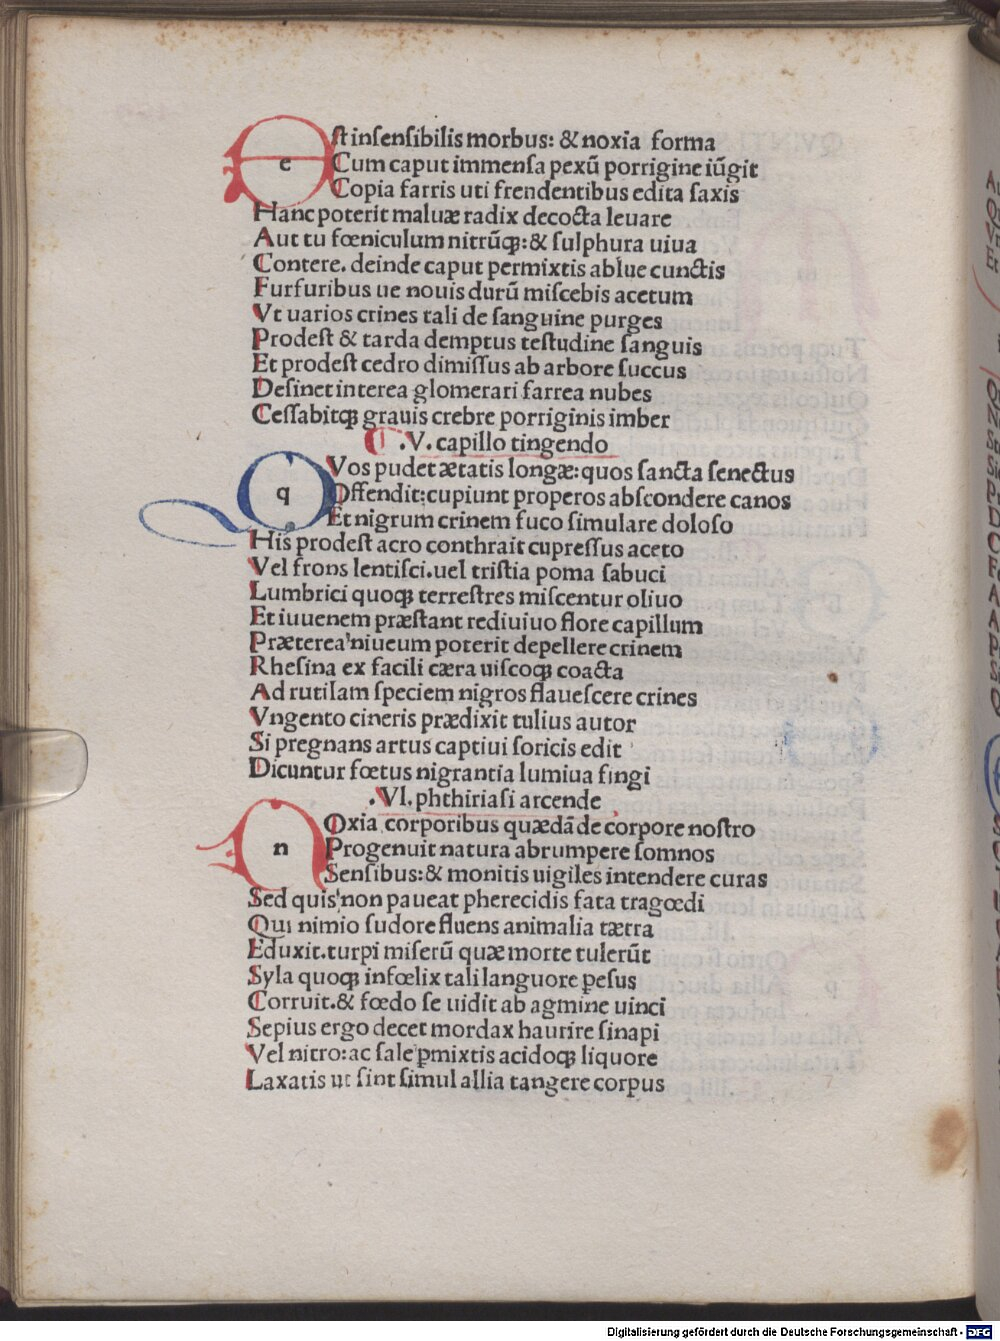 Est insensibilis morbus: & noxia forma
Cum caput immensa pexū porrigine iūgit
Copia farris uti frendentibus edita saxis
Hanc poterit maluæ radix decocta leuare
Aut tu fœniculum nitrūqꝫ: & sulphura uiua
Contere. deinde caput permixtis ablue cunctis
Furfuribus ue nouis durū miscebis acetum
Vt uarios crines tali de sanguine purges
Prodest & tarda demptus testudine sanguis
Et prodest cedro dimissus ab arbore succus
Desinet interea glomerari farrea nubes
Cessabitqꝫ grauis crebre porriginis imber
.V. capillo tingendo
qVos pudet ætatis longæ: quos sancta senectus
Offendit: cupiunt properos abscondere canos
Et nigrum crinem fuco simulare doloso
His prodest acro conthrait cupressus aceto
Vel frons lentisci. uel tristia poma sabuci
Lumbrici quoqꝫ terrestres miscentur oliuo
Et iuuenem præstant rediuiuo flore capillum
Præterea niueum poterit depellere crinem
Rhesina ex facili cæra uiscoqꝫ coacta
Ad rutilam speciem nigros flauescere crines
Vngento cineris prædixit tulius autor
Si pregnans artus captiui soricis edit
Dicuntur fœtus nigrantia lumiua fingi
.VI. phthiriasi arcende
nOxia corporibus quædā de corpore nostro
Progenuit natura abrumpere somnos
Sensibus: & monitis uigiles intendere curas
Sed quis non paueat pherecidis fata tragœdi
Qui nimio sudore fluens animalia tætra
Eduxit. turpi miserū quæ morte tulerūt
Syla quoqꝫ infœlix tali languore pesus
Corruit. & fœdo se uidit ab agmine uinci
Sepius ergo decet mordax haurire sinapi
Vel nitro: ac sale pmixtis acidoqꝫ liquore
Laxatis ut sint simul allia tangere corpus
Digitalisierung gefördert durch die Deutsche Forschungsgemeinschaft - DFG